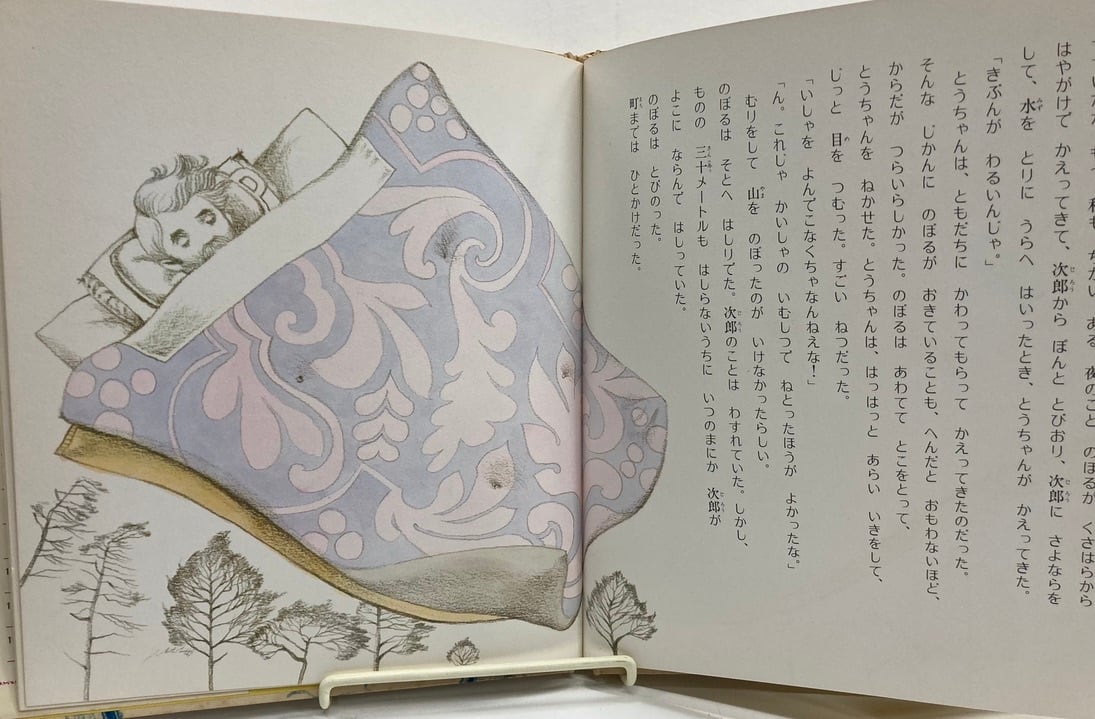 はやがけで かえってきて、次郎から ぽんと とびおり、次郎に さよならを
して、水を とりに うらへ はいったとき、とうちゃんが かえってきた。
「きぶんが わるいんじゃ。」
とうちゃんは、ともだちに かわってもらって かえってきたのだった。
そんな じかんに のぼるが おきていることも、へんだと おもわないほど、
からだが つらいらしかった。のぼるは あわてて とこをとって、
とうちゃんを ねかせた。とうちゃんは、はっはっと あらい いきをして、
じっと 目を つむった。すごい ねつだった。
「いしゃを よんでこなくちゃなんねえな!」
「ん。これじゃ かいしゃの いむしつで ねとったほうが よかったな。」
むりをして 山を のぼったのが いけなかったらしい。
のぼるは そとへ はしりでた。次郎のことは わすれていた。しかし、
ものの 三十メートルも はしらないうちに いつのまにか 次郎が
よこに ならんで はしっていた。
のぼるは とびのった。
町までは ひとかけだった。